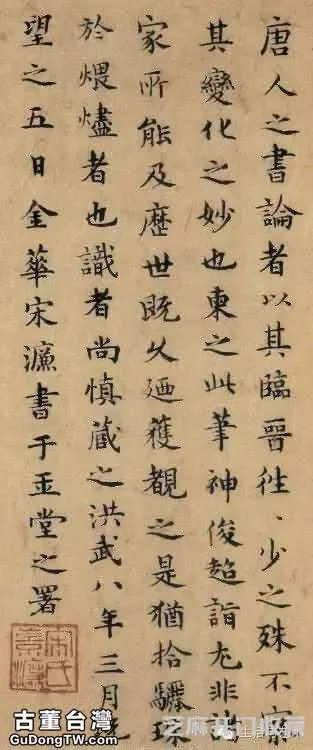 唐人之書論者以其臨晉往、少之殊不察
其變化之妙也柬之此筆神俊超詣尤非他
家所能及歷世既久廼獲覩之是猶拾驪珠
於煨燼者也識者尚慎藏之洪武八年三月既
望之五日金華宋濂書于玉堂之署
宋氏景濂
古董台灣
GuDongTW.com